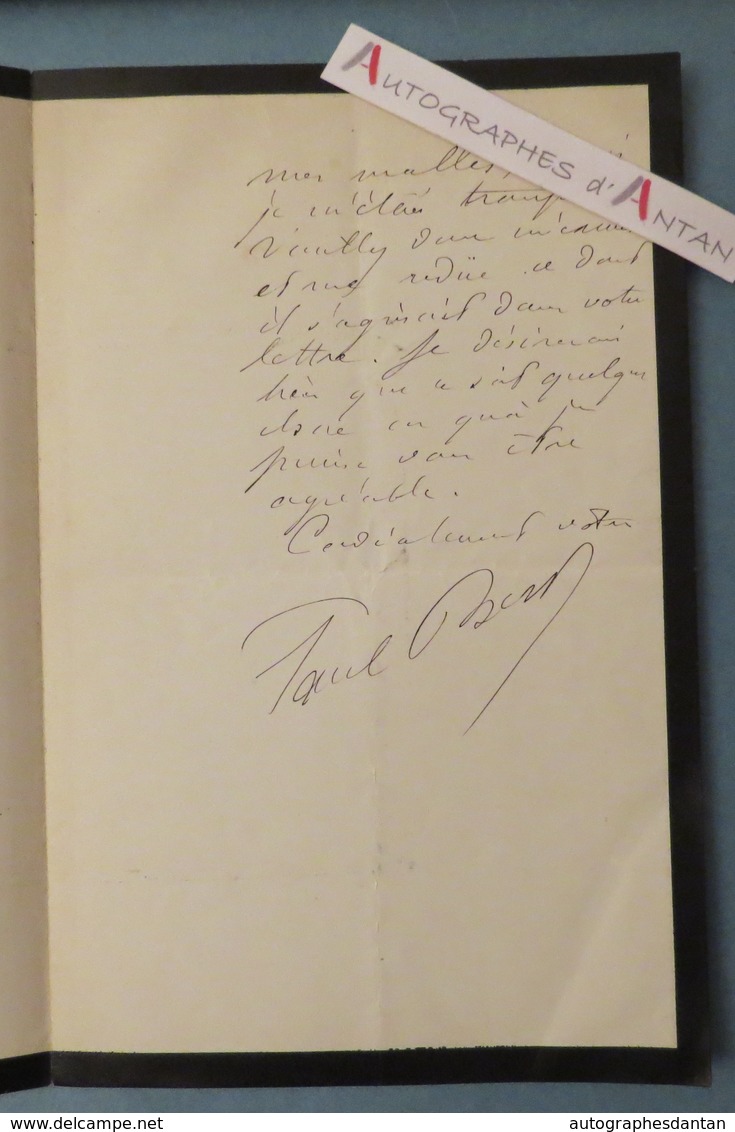 AUTOGRAPHES d'ANTAN
mes malles,
je m'étais
veuillez donc m'écrire
et me redire ce dont
il s'agissait dans votre
lettre. Je désirerais
bien que ce soit quelque
chose en quoi je
puisse vous être
agréable.
Cordialement votre
Paul Bert
delcampe.net
autographesdantan